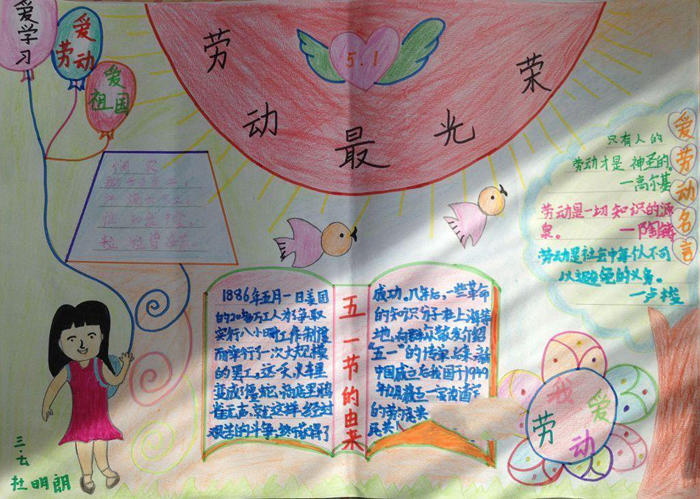 爱学习
爱劳动
爱祖国
5.1
劳动最光荣
爱劳动名言
只有人的
劳动才是神圣的
—高尔基
劳动是一切知识的源
泉。—陶铸
劳动是社会中每个人不可
以避免的义务。
—卢梭
五一节的由来
1886年五月一日美国
的20多万工人为争取
实行八小时工作制度
而举行了一次大规模
的罢工,这天,
经过
艰苦的斗争,终于得了
成功。几年后,一些革命
的知识分子在上海等
地,向群众散发介绍
“五一”的传单
中国成立后我国于1949
我爱劳动
三.七
杜明朗